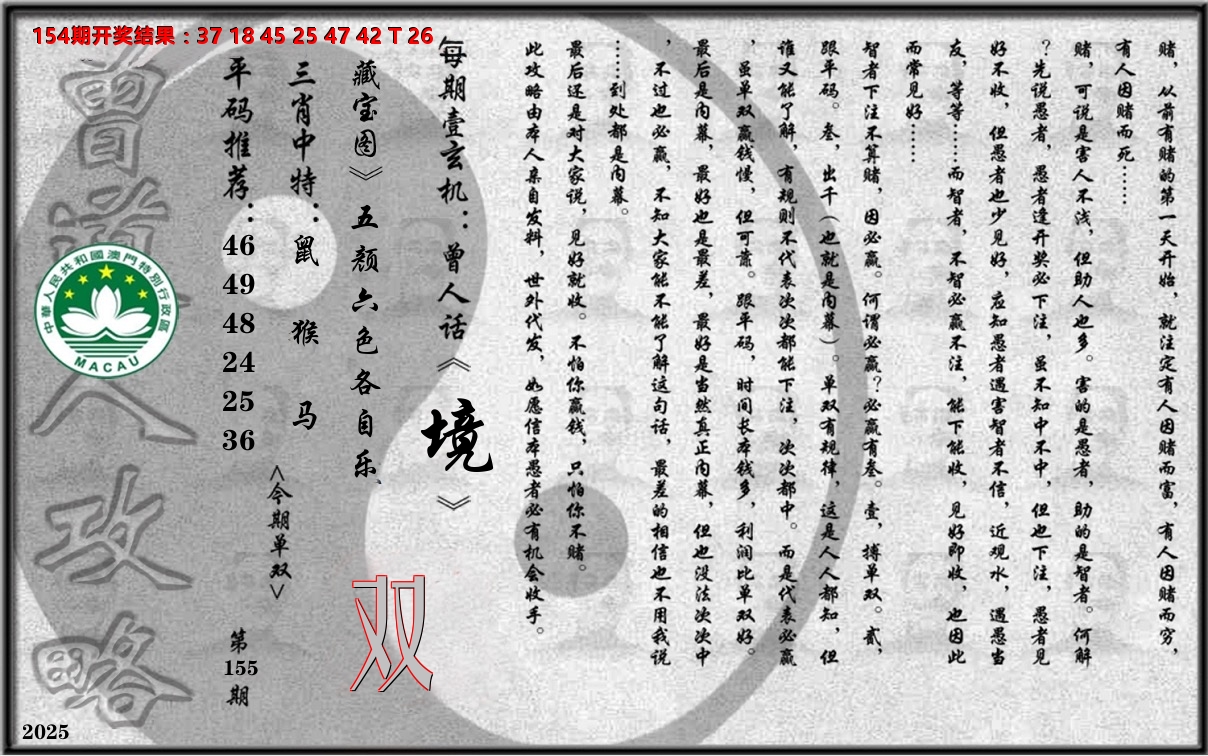 154期开奖结果：37 18 45 25 47 42 T 26
赌，从前有赌的第一天开始，就注定有人因赌而富，有人因赌而穷，
有人因赌而死……
赌，可说是害人不浅，但助人也多。害的是愚者，助的是智者。何解
？先说愚者，愚者逢开奖必下注，虽不知中不中，但也下注，愚者见
好不收，但愚者也少见好，应知愚者遇害智者不信，近观水，遇愚当
友，等等……而智者，不智必赢不注，能下能收，见好即收，也因此
而常见好……
智者下注不算赌，因必赢。何谓必赢？必赢有叁。壹，搏单双。贰，
跟平码。叁，出千（也就是内幕）。单双有规律，这是人人都知，但
谁又能了解，有规则不代表次次都能下注，次次都中。而是代表必赢
，虽单双赢钱慢，但可靠。跟平码，时间长本钱多，利润比单双好。
最后是内幕，最好也是最差，最好是当然真正内幕，但也没法次次中
，不过也必赢，不知大家能不能了解这句话，最差的相信也不用我说
……到处都是内幕。
最后还是对大家说，见好就收。不怕你赢钱，只怕你不赌。
此攻略由本人亲自发料，世外代发，如愿信本愚者必有机会收手。
每期壹玄机：曾人话《境》
藏宝图》五颜六色各自乐、
双
三肖中特：鼠 猴 马
<今期单双>
平码推荐：46 49 48 24 25 36
第155期
曾道人攻略
中華人民共和國澳門特別行政區
MACAU
2025